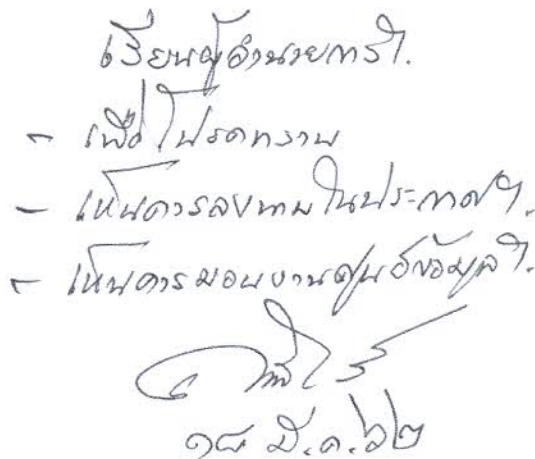 เรียนผู้อำนวยการฯ.
- เพื่อโปรดทราบ
- เห็นควรลงนามในประกาศฯ.
- เห็นควรมอบงานศูนย์ข้อมูลฯ.
๑๘ มี.ค.๖๒